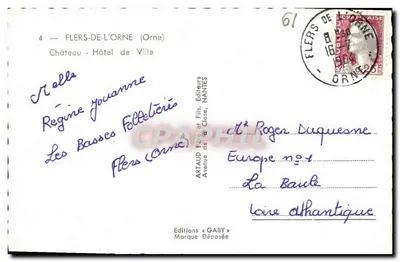 61
4 — FLERS-DE-L'ORNE (Orne)
Château - Hôtel de Ville
Melle
Régine Jouanne
Les Basses Folletières
Flers (Orne)
ARTAUD Père et Fils, Editeurs
Avenue de la Close, NANTES
FLERS DE L'ORNE
ORNE
0,25
Mr Roger Duquesne
Europe n°1
La Baule
Loire Atlantique
Editions "GABY"
Marque Déposée